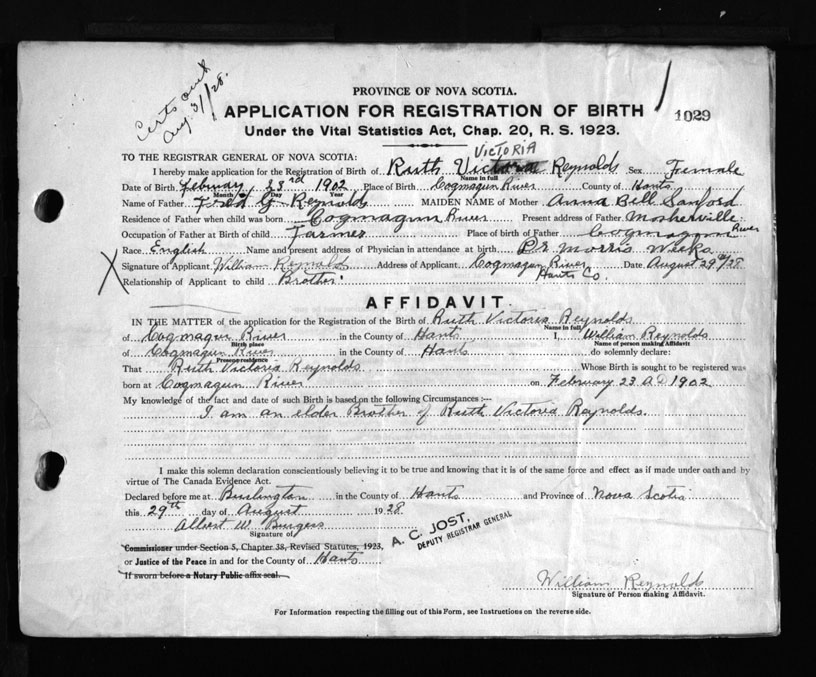 Certs out
Aug. 31/28.
PROVINCE OF NOVA SCOTIA.
APPLICATION FOR REGISTRATION OF BIRTH
1029
Under the Vital Statistics Act, Chap. 20, R. S. 1923.
VICTORIA
TO THE REGISTRAR GENERAL OF NOVA SCOTIA:
I hereby make application for the Registration of Birth of Ruth Victoria Reynolds Sex Female
Name in full
Date of Birth February 23rd 1902 Place of Birth Cogmagun River County of Hants
Month Day Year
Name of Father Fred G. Reynolds MAIDEN NAME of Mother Anna Bell Sanford
Residence of Father when child was born Cogmagun River Present address of Father Mosherville
Occupation of Father at Birth of child Farmer Place of birth of Father Cogmagun River
Race English Name and present address of Physician in attendance at birth Dr Morris Weeks
Signature of Applicant William Reynolds Address of Applicant Cogmagun River Date August 29th/28
Hants Co.
Relationship of Applicant to child Brother
AFFIDAVIT.
IN THE MATTER of the application for the Registration of the Birth of Ruth Victoria Reynolds
Name in full
of Cogmagun River in the County of Hants I, William Reynolds
Birth place Name of person making Affidavit
of Cogmagun River in the County of Hants do solemnly declare:
Present residence
That Ruth Victoria Reynolds Whose Birth is sought to be registered was
born at Cogmagun River on February 23 A D 1902
My knowledge of the fact and date of such Birth is based on the following Circumstances :—
I am an elder Brother of Ruth Victoria Reynolds.
I make this solemn declaration conscientiously believing it to be true and knowing that it is of the same force and effect as if made under oath and by
virtue of The Canada Evidence Act.
Declared before me at Burlington in the County of Hants and Province of Nova Scotia
this 29th day of August 1928
Albert W. Burgess
Signature of
A. C. JOST,
DEPUTY REGISTRAR GENERAL
Commissioner under Section 5, Chapter 38, Revised Statutes, 1923,
or Justice of the Peace in and for the County of Hants
If sworn before a Notary Public affix seal.
William Reynolds
Signature of Person making Affidavit.
For Information respecting the filling out of this Form, see Instructions on the reverse side.